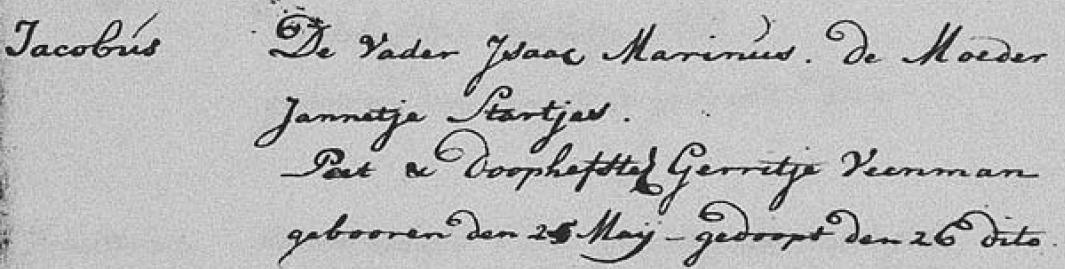 Jacobús De Vader Jsaac Marinús. de Moeder
Jannetje Startjes.
Peet & Doophefster Gerritje Veenman
gebooren den 25 Maij - gedoopt den 26 dito.